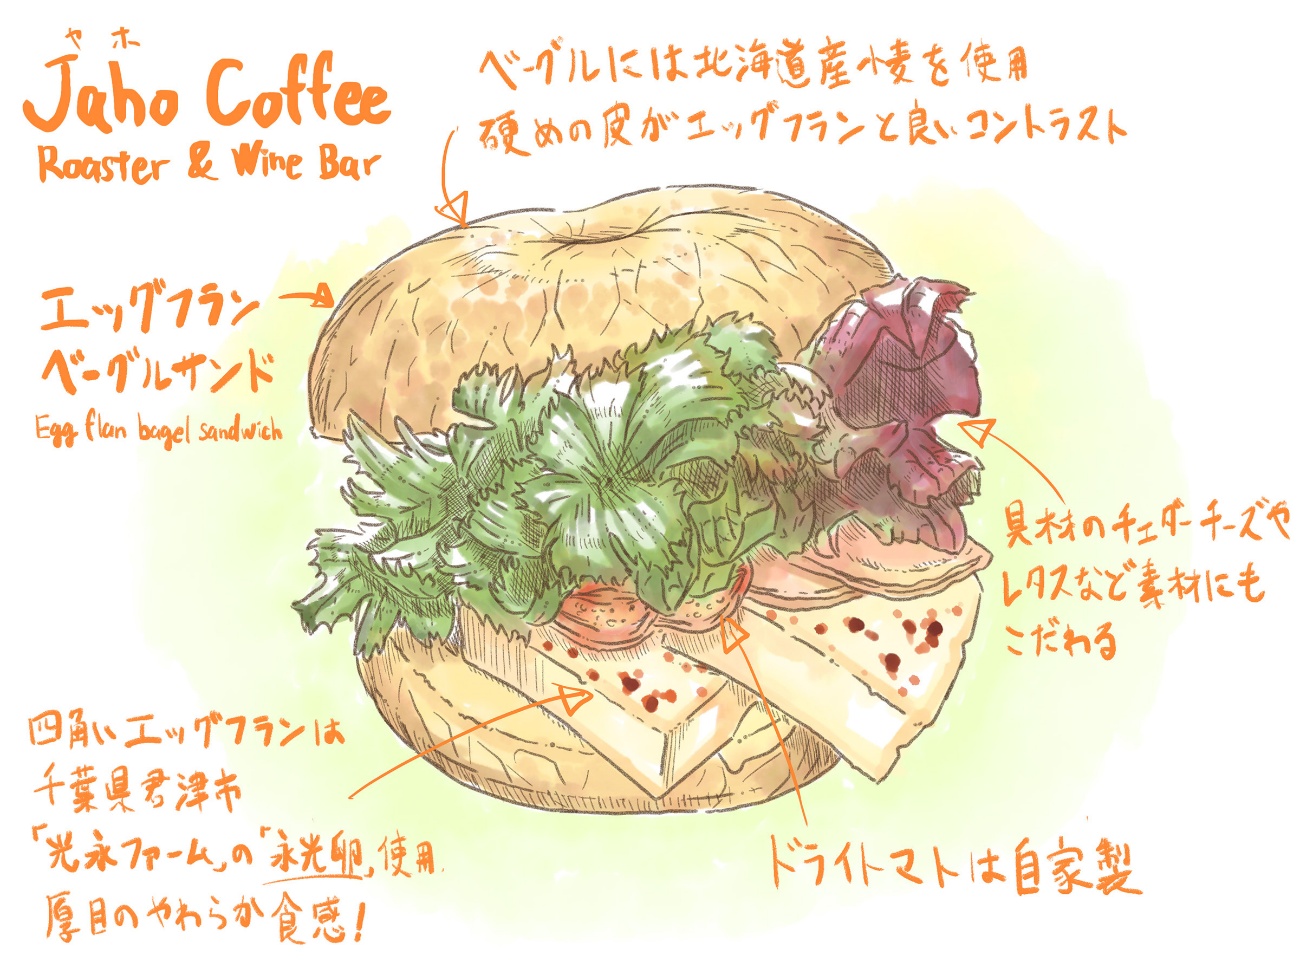 ヤホ
Jaho Coffee
Roaster & Wine Bar
ベーグルには北海道産小麦を使用
硬めの皮がエッグフランと良いコントラスト
エッグフラン
ベーグルサンド
Egg flan bagel sandwich
具材のチェダーチーズや
レタスなど素材にも
こだわる
四角いエッグフランは
千葉県君津市
「光永ファーム」の「永光卵」使用
厚目のやわらか食感!
ドライトマトは自家製